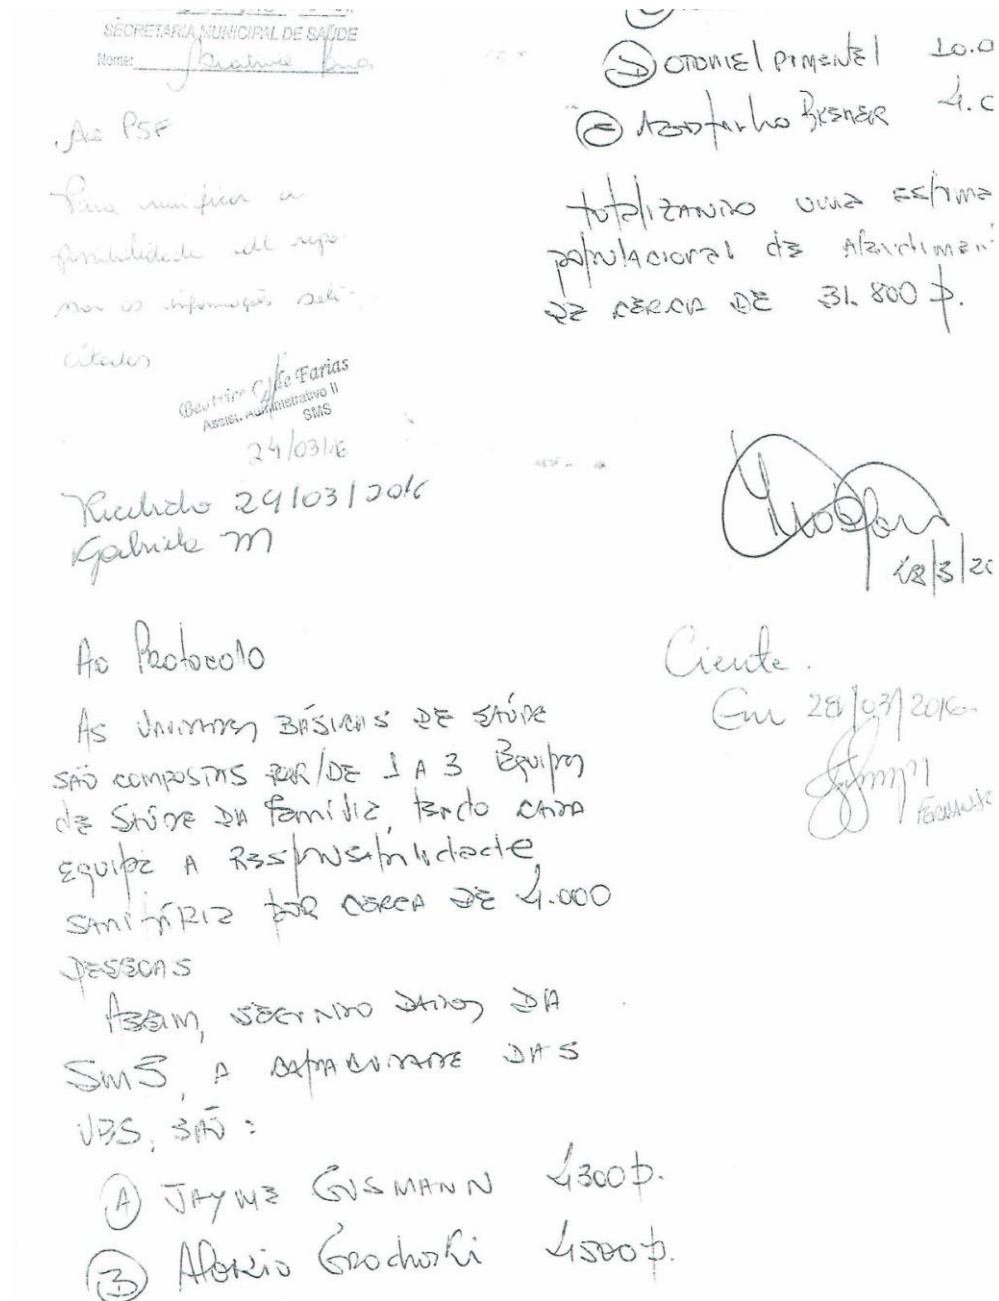 SECRETARIA MUNICIPAL DE SAÚDE
Nome:
Ao PSF
Para verificar a
possibilidade de repas-
sar as informações soli-
citadas
Beatriz C de Farias
Assist. Administrativo II
SMS
24/03/16
Recebido 29/03/2016
Gabriela M
Ao Protocolo
As Unidades BÁSICAS DE SAÚDE
SÃO COMPOSTAS POR/DE 1 A 3 Equipes
de SAÚDE DA família, tendo CADA
EQUIPE A RESPONSAbilidade
SANITÁRIA POR CERCA DE 4.000
PESSOAS
ASSIM, SEGUNDO DADOS DA
SMS, A CAPACIDADE DAS
UBS, SÃO:
A JAYME GUSMANN 4300p.
B Aloxio Grochoski 4500p.
D OTONIEL PIMENTEL 10.0
E BRENER 4.0
totalizando uma estima
populacional de Atendimen
DE CERCA DE 31.800 p.
28/3/20
Ciente.
Em 28/03/2016